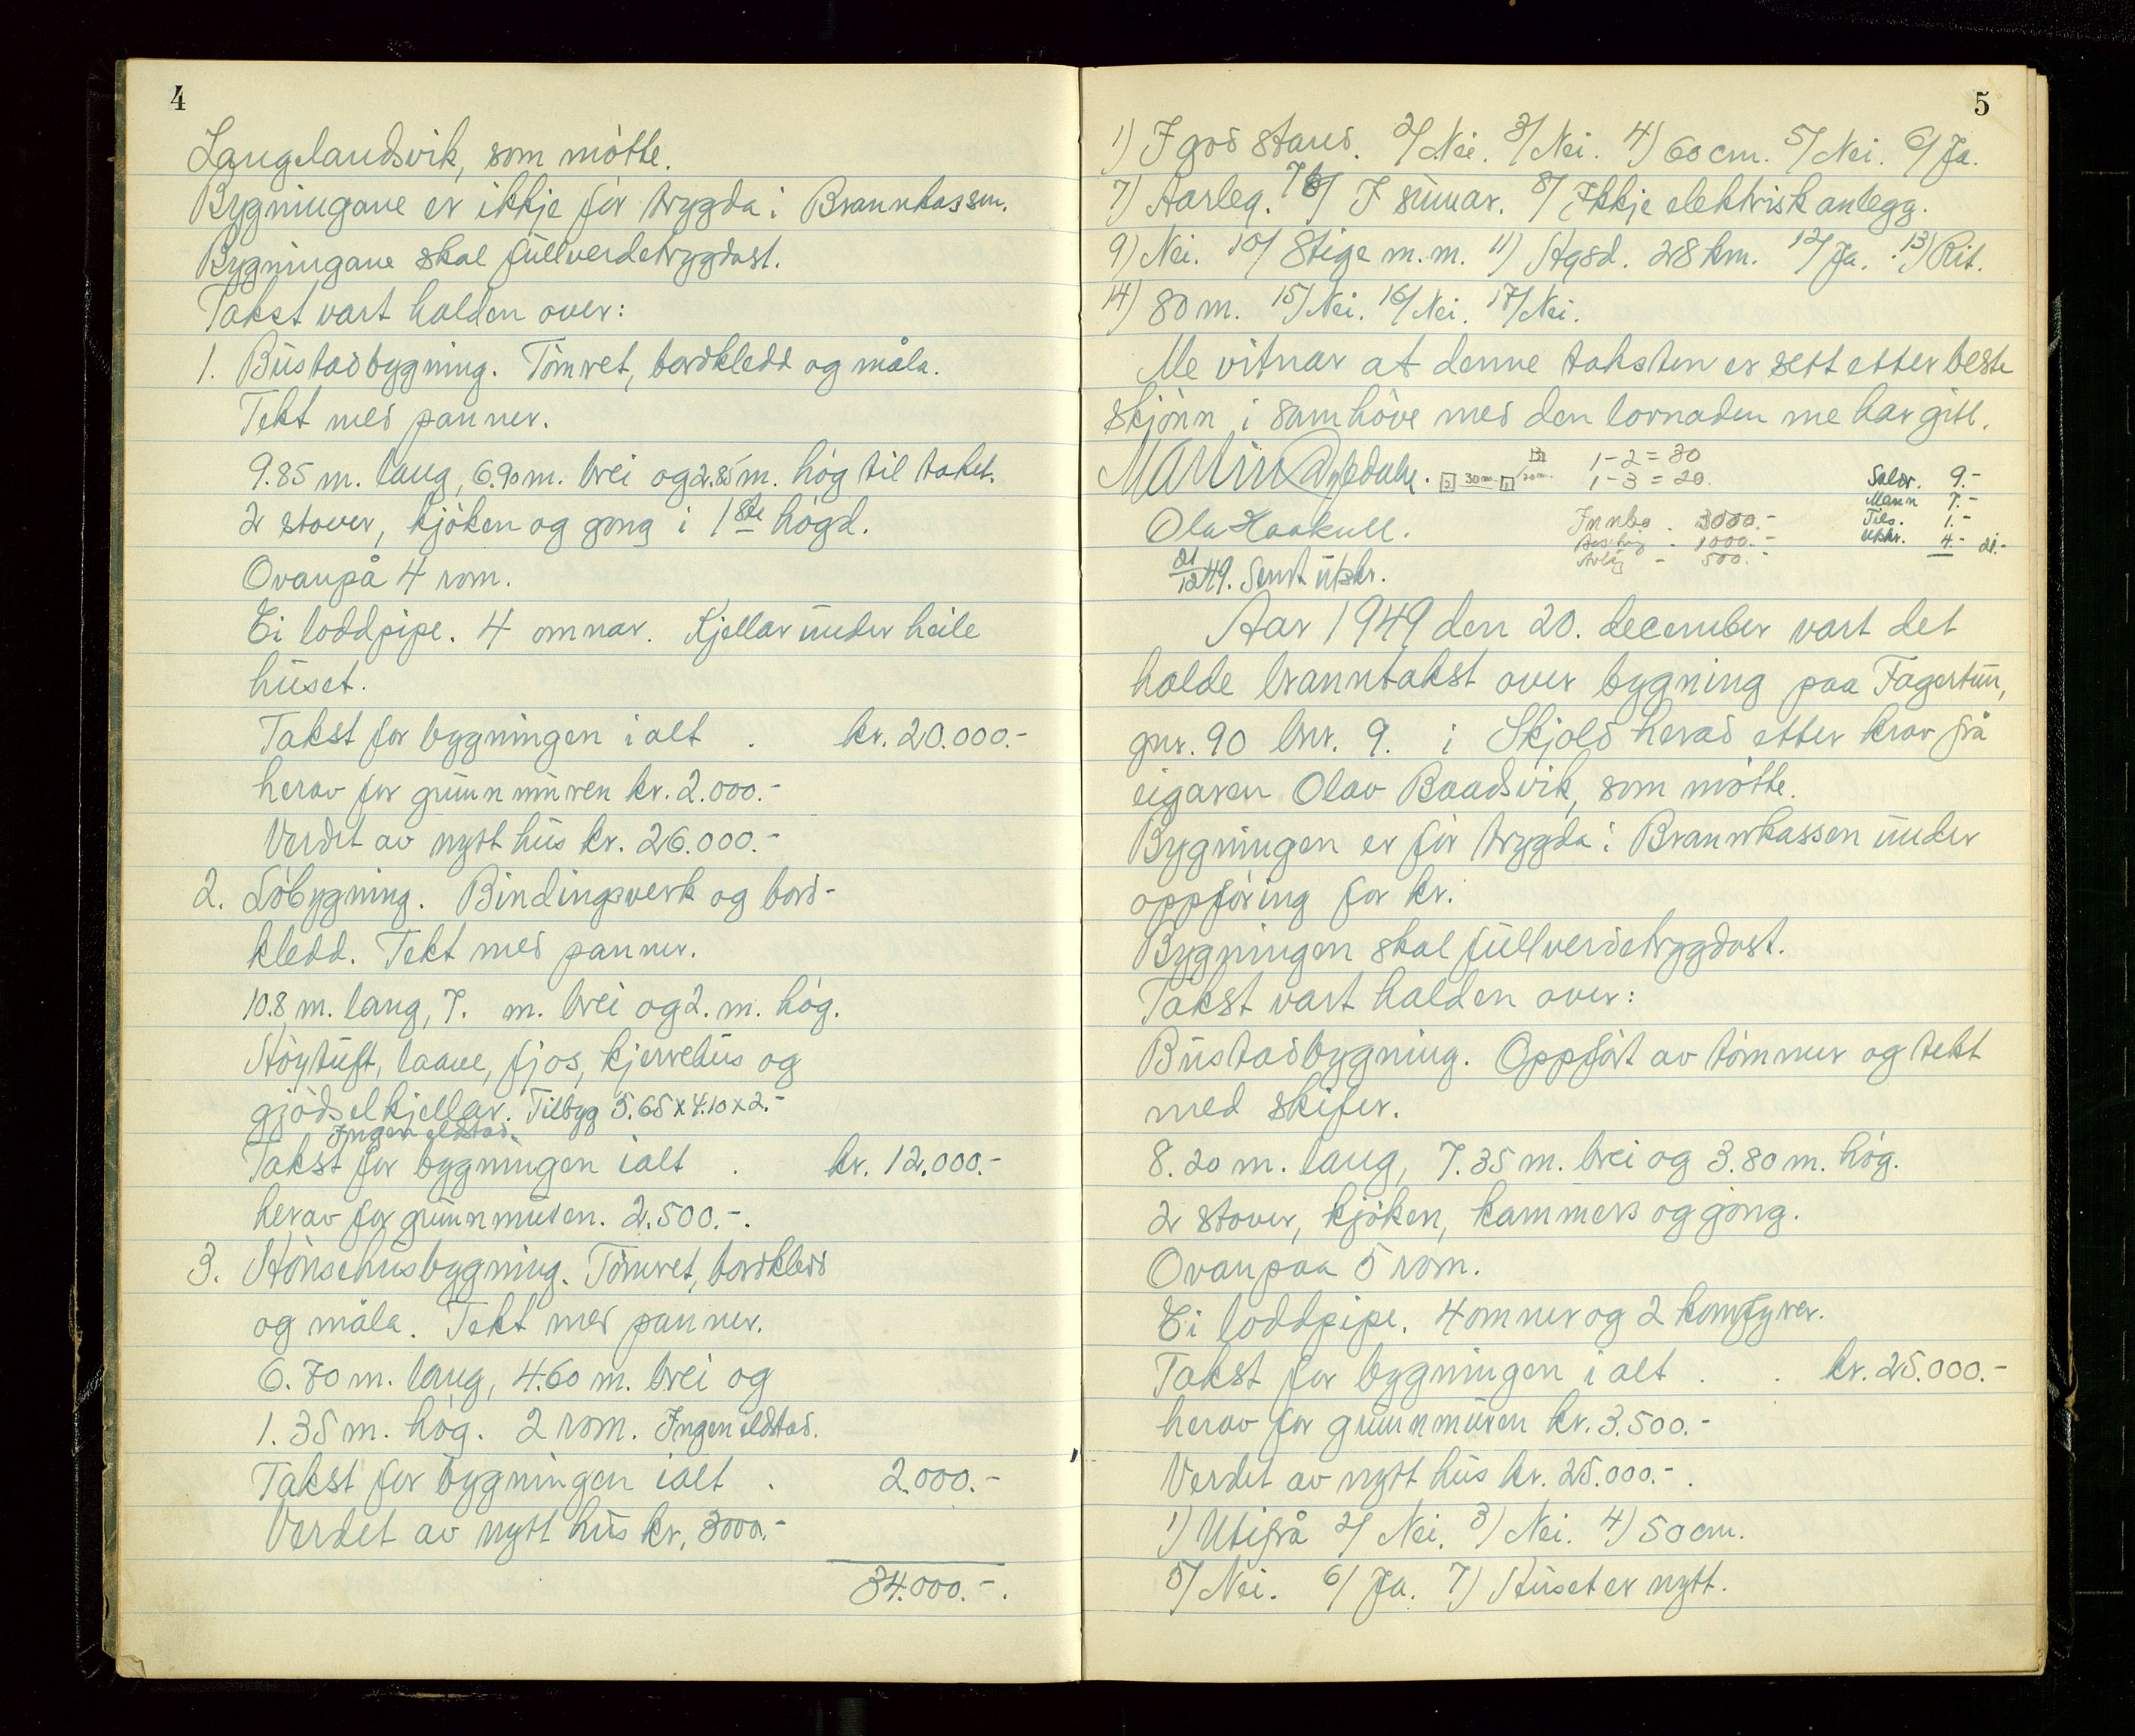 4
Langelandsvik, som mötte.
Bygningane er ikkje för trygda i Brannkassen.
Bygningane skal fullverdetrygdast.
Takst vart halden over:
1. Bustadbygning. Tömret, bordkledd og måla.
Tekt med panner.
9.85 m. lang, 6.90 m. brei og 2.85 m. hög til taket.
2 stover, kjöken og gong i 1ste högd.
Ovanpå 4 rom.
Ei loddpipe. 4 omnar. Kjellar under heile
huset.
Takst for bygningen ialt . kr. 20.000.-
herav for grunnmuren kr. 2.000.-
Verdet av nytt hus kr. 26.000.-
2. Löbygning. Bindingsverk og bord-
kledd. Tekt med panner.
10.8 m. lang, 7. m. brei og 2. m. hög.
Höytuft, laave, fjos, kjerrehus og
gjödselkjellar. Tilbyg 5.65 x 4.10 x 2.-
Ingen eldstad.
Takst for bygningen ialt . kr. 12.000.-
herav for grunnmuren. 2.500.-.
3. Hönsehusbygning. Tömret, bordkledd
og måla. Tekt med panner.
6.70 m. lang, 4.60 m. brei og
1.35 m. hög. 2 rom. Ingen eldstad.
Takst for bygningen ialt . 2.000.-
Verdet av nytt hus kr. 3000.-
34.000.-.
5
1) I god stand. 2/ Nei. 3/ Nei. 4) 60 cm. 5/ Nei. 6/ Ja.
7) Aarleg. 7b/ I sumar. 8/ Ikkje elektrisk anlegg.
9) Nei. 10/ Stige m.m. 11) Hgsd. 28 km. 12/ Ja. 13) Rit.
14) 80 m. 15/ Nei. 16/ Nei. 17/ Nei.
Me vitnar at denne taksten er sett etter beste
skjönn i samhöve med den lovnaden me har gitt.
Martin
1-2 = 30
1-3 = 20.
Ola Haakull.
Innbo . 3000.-
1000.-
Avling - 500.-
Salær. 9.-
Mann 7.-
Tils. 1.-
Utskr. 4.- 21.-
21/12 49. Sendt utskr.
Aar 1949 den 20. december vart det
halde branntakst over bygning paa Fagertun,
gnr. 90 bnr. 9. i Skjold herad etter krav frå
eigaren Olav Baadsvik, som mötte.
Bygningen er för trygda i Brannkassen under
oppföring for kr.
Bygningen skal fullverdetrygdast.
Takst vart halden over:
Bustadbygning. Oppfört av tömmer og tekt
med skifer.
8.20 m. lang, 7.35 m. brei og 3.80 m. hög.
2 stover, kjöken, kammers og gong.
Ovanpaa 5 rom.
Ei loddpipe. 4 omner og 2 komfyrer.
Takst for bygningen i alt . . kr. 25.000.-
herav for grunnmuren kr. 3.500.-
Verdet av nytt hus kr. 25.000.-.
1) Utifrå 2/ Nei. 3) Nei. 4) 50 cm.
5/ Nei. 6/ Ja. 7) Huset er nytt.